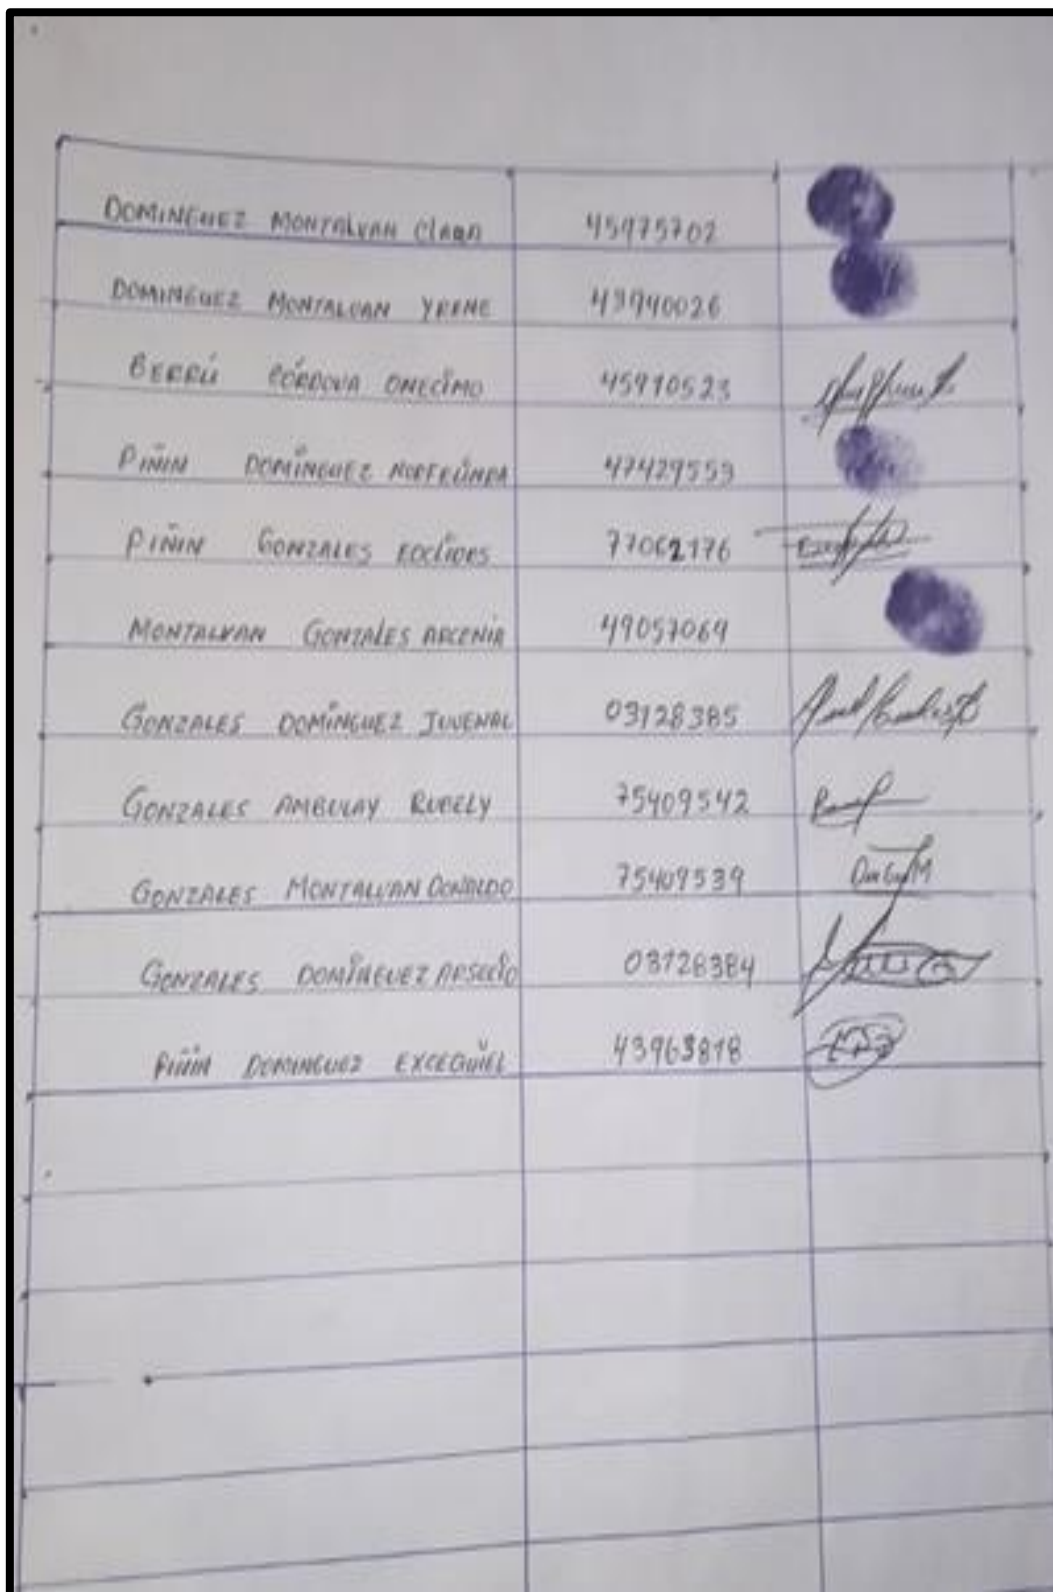 DOMINGUEZ MONTALVAN CLARA 45975702
DOMINGUEZ MONTALVAN YRENE 43940026
BERRÚ CÓRDOVA ONECÍMO 45910523
PIÑIN DOMÍNGUEZ 47429553
PIÑIN GONZALES EOCLIDES 77062176
MONTALVAN GONZALES ARCENIA 49057069
GONZALES DOMÍNGUEZ JUVENAL 03128385
GONZALES AMBULAY RUBELY 75409542
GONZALES MONTALVAN DONALDO 75409539
GONZALES DOMÍNGUEZ 03128384
PIÑIN DOMINGUEZ EXCEQUIEL 43963818